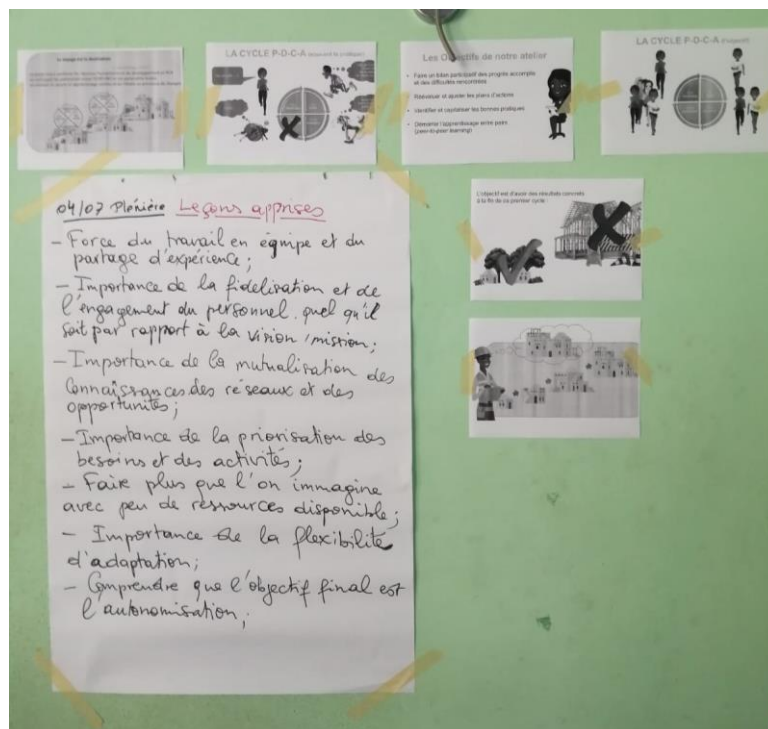 LA CYCLE P-D-C-A
Les Objectifs de notre atelier
• Faire un bilan participatif des progrès accomplis
et des difficultés rencontrées
• Réévaluer et ajuster les plans d'actions
• Identifier et capitaliser les bonnes pratiques
• Démontrer l'apprentissage entre pairs
(peer-to-peer learning)
LA CYCLE P-D-C-A
L'objectif est d'avoir des résultats concrets
à la fin de ce premier cycle
04/07 Plénière Leçons apprises
- Force du travail en équipe et du
partage d'expérience;
- Importance de la fidélisation et de
l'engagement du personnel, quel qu'il
soit par rapport à la vision/mission;
- Importance de la mutualisation des
Connaissances des réseaux et des
opportunités;
- Importance de la priorisation des
besoins et des activités;
- Faire plus que l'on immagine
avec peu de ressources disponible;
- Importance de la flexibilité
d'adaptation;
- Comprendre que l'objectif final est
l'autonomisation;